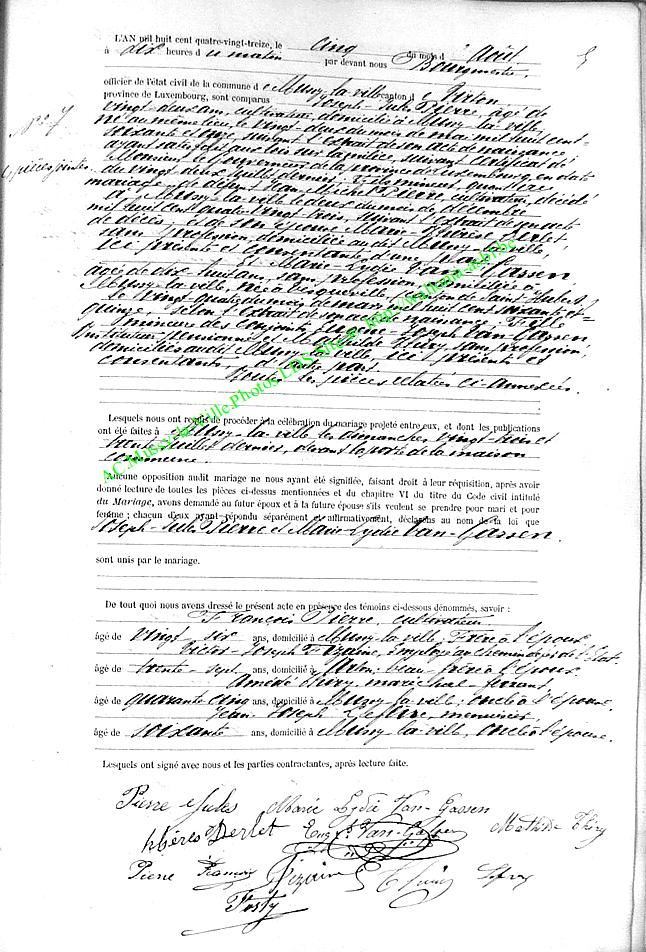 L'AN mil huit cent quatre-vingt-treize, le cinq du mois d'Août
à dix heures du matin par devant nous Bourgmestre
officier de l'état civil de la commune de Mussy-la-ville canton de Virton,
province de Luxembourg, sont comparus Joseph-Jules Pierre, âgé de
vingt-deux ans, cultivateur, domicilié à Mussy-la-ville,
né au même lieu le vingt-deux du mois de mai mil huit cent-
soixante et onze, suivant l'extrait de son acte de naissance;
ayant satisfait aux lois sur la milice, suivant certificat de
Monsieur le Gouverneur de la province de Luxembourg, en date
du vingt-deux juillet dernier; fils mineur, quant au
mariage, de défunt Jean-Michel Pierre, cultivateur, décédé
à Mussy-la-ville le deux du mois de décembre
mil huit cent quatre-vingt trois, suivant l'extrait de son acte
de décès, et de son épouse Marie-Thérèse Derlet,
sans profession, domiciliée au dit Mussy-la-ville,
ici présente et consentante, d'une part;
Et Marie-Lydie Van-Gassen,
âgée de dix-huit ans, sans profession, domiciliée à
Mussy-la-ville, née à canton de Saint-Hubert,
le vingt-quatre du mois de mars mil huit cent soixante et-
quinze, selon l'extrait de son acte de naissance; Fille
mineure des conjoints Eugène-Joseph Van-Gassen,
Instituteur pensionné et Mathilde Thiry, sans profession,
domiciliés audit Mussy-la-ville, ici présents et
consentants, d'autre part.
Toutes les pièces relatées ci-annexées.
N° 7
pièces jointes
AC.Mussy-la-Ville.Photos LDS.Site @ http://wallonia-asbl.be
Lesquels nous ont requis de procéder à la célébration du mariage projeté entre eux, et dont les publications
ont été faites à Mussy-la-ville les dimanches vingt-trois et
trente juillet derniers, devant la porte de la maison
commune.
Aucune opposition audit mariage ne nous ayant été signifiée, faisant droit à leur réquisition, après avoir
donné lecture de toutes les pièces ci-dessus mentionnées et du chapitre VI du titre du Code civil intitulé
du Mariage, avons demandé au futur époux et à la future épouse s'ils veulent se prendre pour mari et pour
femme; chacun d'eux ayant répondu séparément et affirmativement, déclarons au nom de la loi que
Joseph-Jules Pierre et Marie-Lydie Van-Gassen.
sont unis par le mariage.
De tout quoi nous avons dressé le présent acte en présence des témoins ci-dessous dénommés, savoir :
François Pierre, cultivateur
âgé de vingt-six ans, domicilié à Mussy-la-ville, Frère à l'époux,
Victor-Joseph Fizaine, employé au chemin de fer de l'Etat
âgé de trente-sept ans, domicilié à Arlon, beau-frère à l'époux
Amédé Thiry, maréchal-ferrant
âgé de quarante-cinq ans, domicilié à Mussy-la-ville, oncle à l'épouse,
Jean-Joseph Lefèvre, menuisier,
âgé de soixante ans, domicilié à Mussy-la-ville, oncle à l'épouse.
Lesquels ont signé avec nous et les parties contractantes, après lecture faite.
Pierre Jules Marie Lydie Van-Gassen
Thérès Derlet Eug Jh Van-Gassen Mathilde Thiry
Pierre François Fizaine Thiry